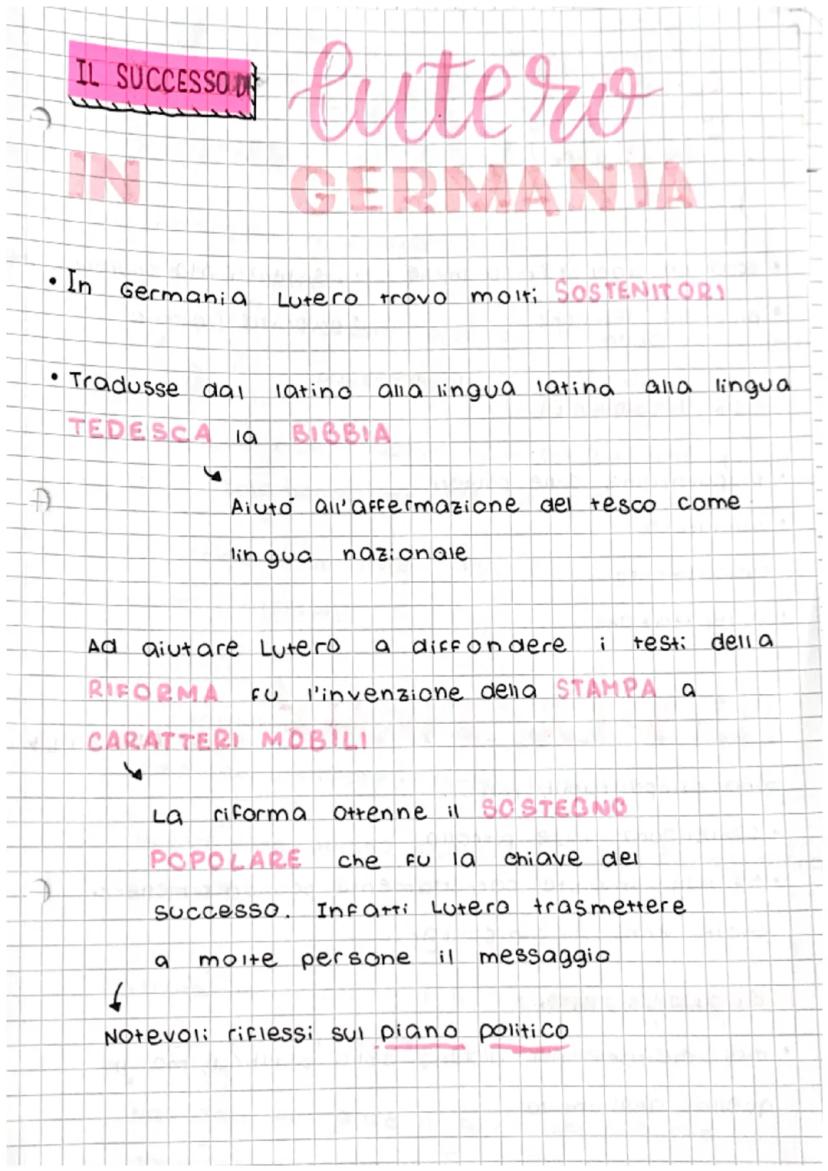 IL SUCCESSO DI lutero
IN GERMANIA
• In Germania Lutero trovo molti SOSTENITORI
• Tradusse dal latino alla lingua latina alla lingua
TEDESCA la BIBBIA
Aiutò all'affermazione del tesco come
lingua nazionale
Ad aiutare Lutero a diffondere i testi della
RIFORMA fu l'invenzione della STAMPA a
CARATTERI MOBILI
La riforma ottenne il SOSTEGNO
POPOLARE che fu la chiave del
successo. Infatti Lutero trasmettere
a molte persone il messaggio
Notevoli riflessi sul piano politico